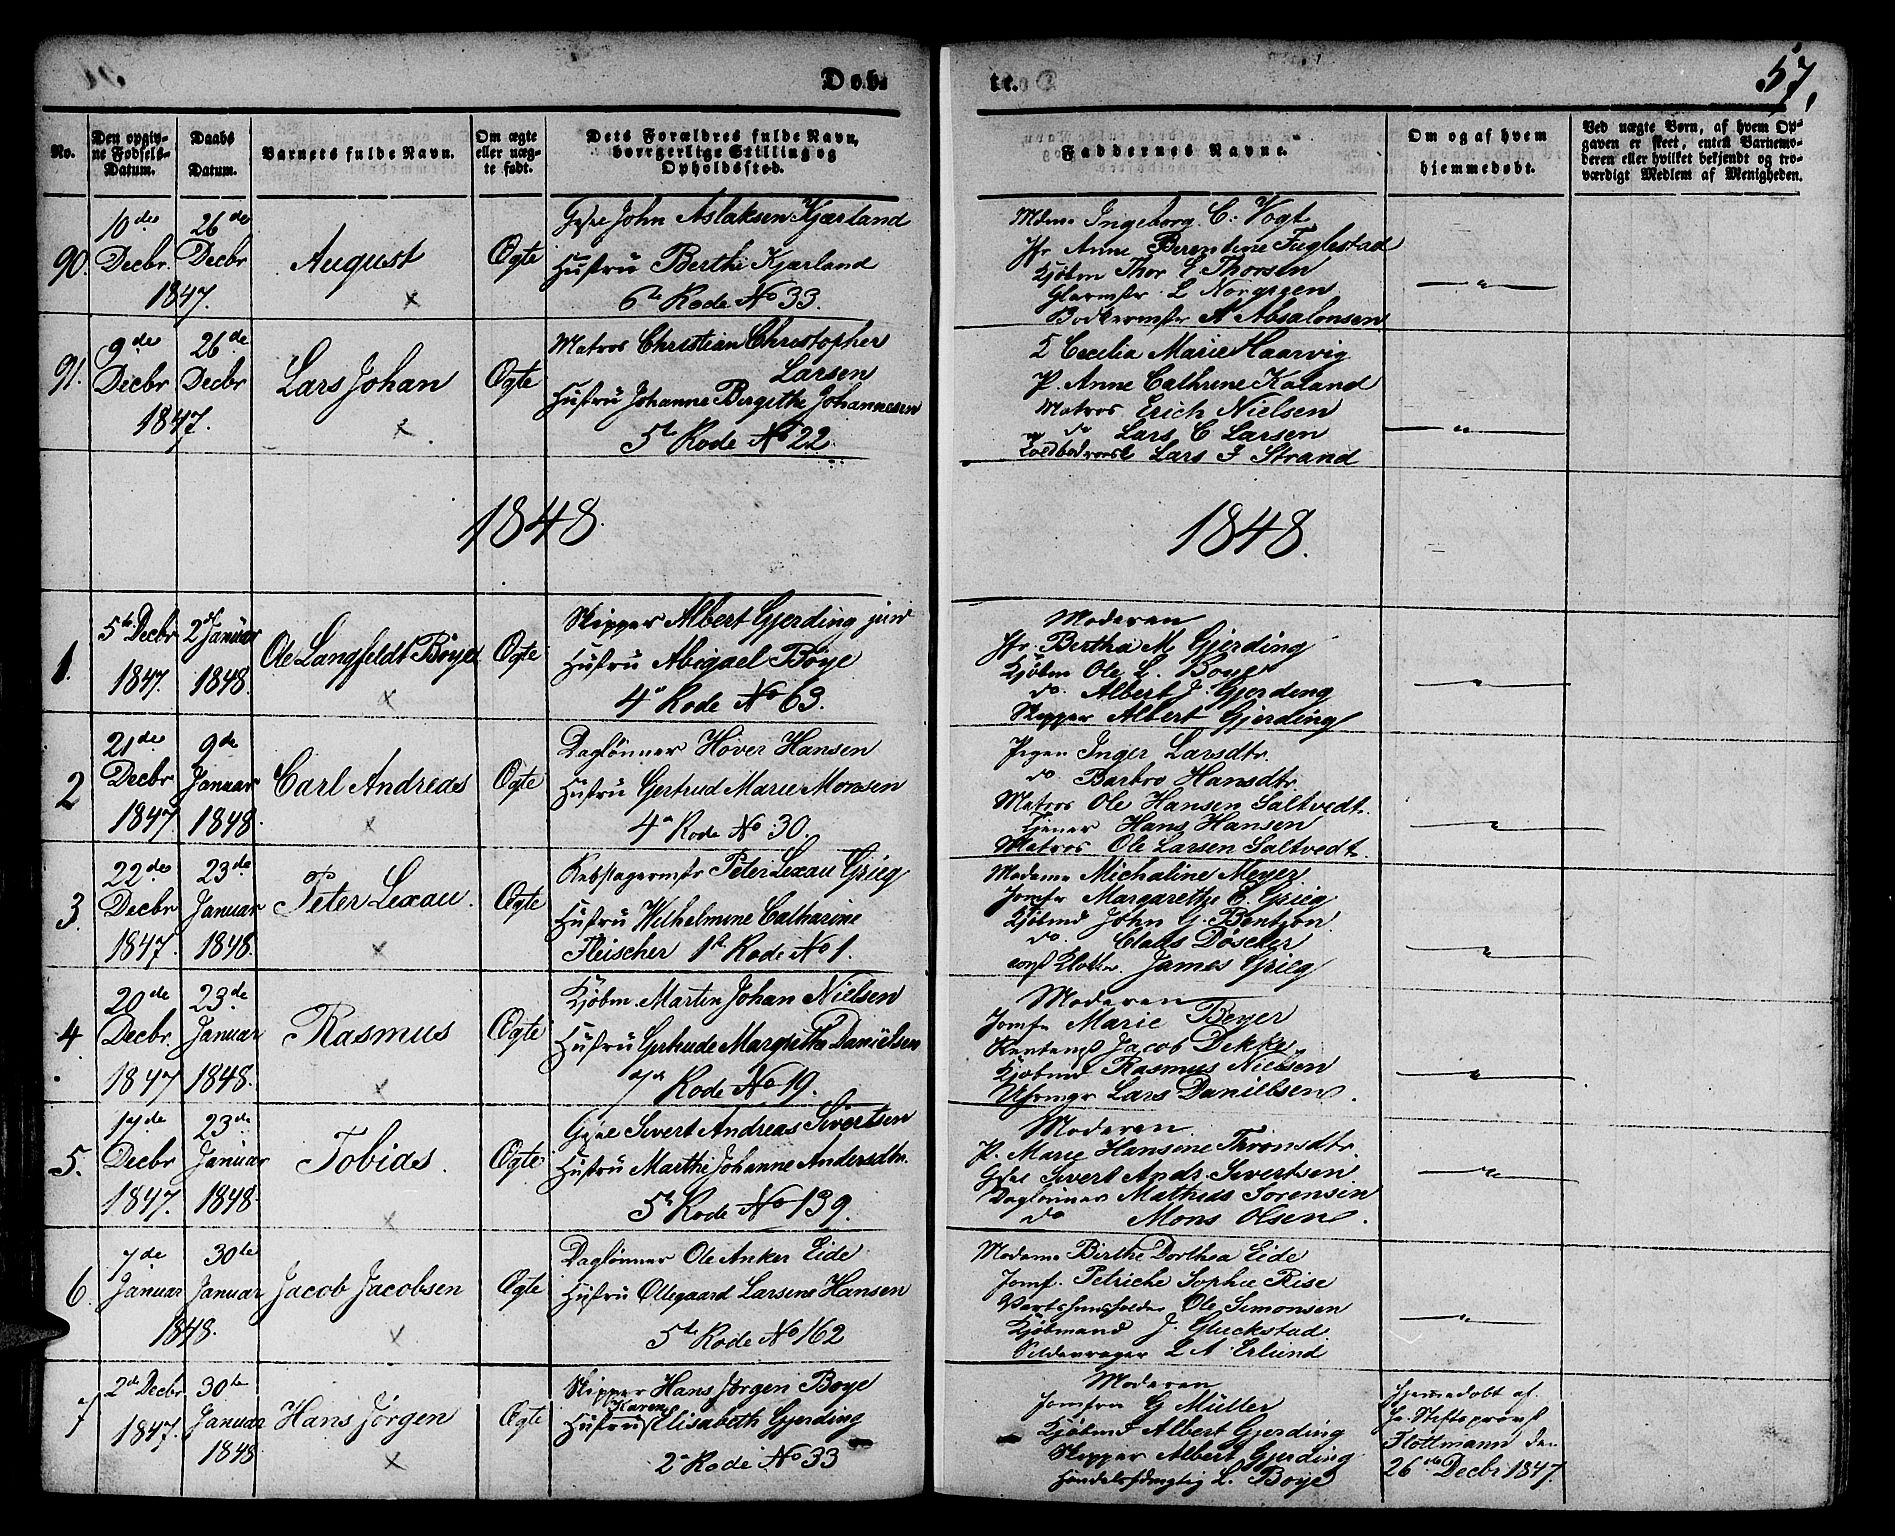 Døb-
te.
57,
No.
Den opgiv-
ne Fødsels-
Datum.
Daabs
Datum.
Barnets fulde Navn.
Om ægte
eller uæg-
te født.
Dets Forældres fulde Navn,
borrgerlige Stilling og
Opholdssted.
Faddernes Navne.
Om og af hvem
hjemmedøbt.
Ved uægte Børn, af hvem Op-
gaven er skeet, enten Barnemo-
deren eller hvilket bekjendt og tro-
værdigt Medlem af Menigheden.
90.
10de
Decbr.
1847.
26de
Decbr
August
Ægte
John Aslaksen Kjærland
Hustru Berthe Kjærland
6te Rode No 33.
Ingeborg C: Vogt
Jfr. Anne Berentine Fuglestad
Kjøbm Thor E Thorsen
Glarmstr. L Norgreen
Bødkermstr A Absalonsen
91.
9de
Decbr
1847.
26de
Decbr
Lars Johan
Ægte
Matros Christian Christopher
Larsen
Hustru Johanne Birgithe Johannesen
5te Rode No 22.
Cecilia Marie Haarvig
P. Anne Cathrine Kaland
Matros Erich Nielsen
do Lars C Larsen
Lars J Strand
1848.
1848.
1.
5te Decbr
1847.
2de Januar
1848.
Ole Langfeldt Böye
Ægte
Skipper Albert Gjerding jun
Hustru Abigael Böye
4de Rode No 63.
Moderen
Jfr. Bertha M Gjerding
Kjöbm Ole L. Boye
do. Albert J. Gjerding
Skipper Albert Gjerding
2
21de
Decbr
1847
9de
Januar
1848.
Carl Andreas
Ægte
Daglönner Hover Hansen
Hustru Gertrud Marie Monsen
4de Rode No 30.
Pigen Inger Larsdtr.
do Barbro Hansdtr.
Matros Ole Hansen Saltvedt.
Tjener Hans Hansen
Matros Ole Larsen Saltvedt.
3.
22de
Decbr
1847.
23de
Januar
1848.
Peter Lexau.
Ægte
Rebslagermstr Peter Lexau Grieg
Hustru Wilhelmine Catharine
Fleischer 1ste Rode No 1.
Madame Michaline Meyer
Jomfr Margarethe E. Grieg
Kjöbmd John G. Bentzon.
do. Claus Döscher
James Grieg
4
20de
Decbr.
1847
23de
Januar
1848.
Rasmus
Ægte
Kjöbm. Martin Johan Nielsen
Hustru Gertrude Margrethe Daniëlsen
7de Rode No 19.
Moderen
Jomfr Marie Beyer
Jacob Dekke
Kjöbmd Rasmus Nielsen
Lars Danielsen.
5.
17de
Decbr
1847.
23de
Januar
1848.
Tobias.
Ægte
Sivert Andreas Sivertsen
Hustru Marthe Johanne Andersdtr.
5te Rode No 139.
Moderen
P. Marie Hansine Thronsdtr.
Sivert Andr. Sivertsen
Daglönner Mathias Sörensen
do Mons Olsen.
6.
7de
Januar
1848.
30te
Januar
Jacob Jacobsen
Ægte
Daglönner Ole Anker Eide
Hustru Ollegaard Larsine Hansen
5te Rode No 162
Madame Birthe Dorthea Eide
Jomf. Petriche Sophie Rise
Vertshuusholder Ole Simonsen
Kjöbmand J. Gluckstad
Sildevrager L A Erlund
7
2de Decbr
1847.
30te
Januar
1848
Hans Jörgen
Ægte
Skipper Hans Jörgen Boye
Karen
Hustru Elisabeth Gjerding
2de Rode No 33
Moderen
Jomfru G Müller
Kjöbmd Albert Gjerding
Skipper Albert Gjerding
Handelsfuldmægtig L. Boye
hjemmedöbt af
Hr. Stiftsprovst
Flottmann den
26de Decbr 1847.